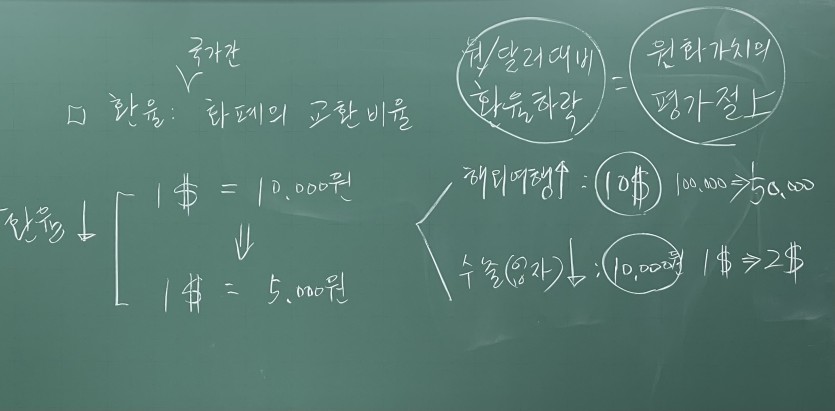 국가간
□ 환율: 화폐의 교환비율
환율↓
1$ = 10,000원
⇓
1$ = 5,000원
원/달러대비 환율하락 = 원화가치의 평가절上
해외여행↑ : 10$ 100,000 ⇒ 50,000
수출(업자)↓ : 10,000원 1$ ⇒ 2$